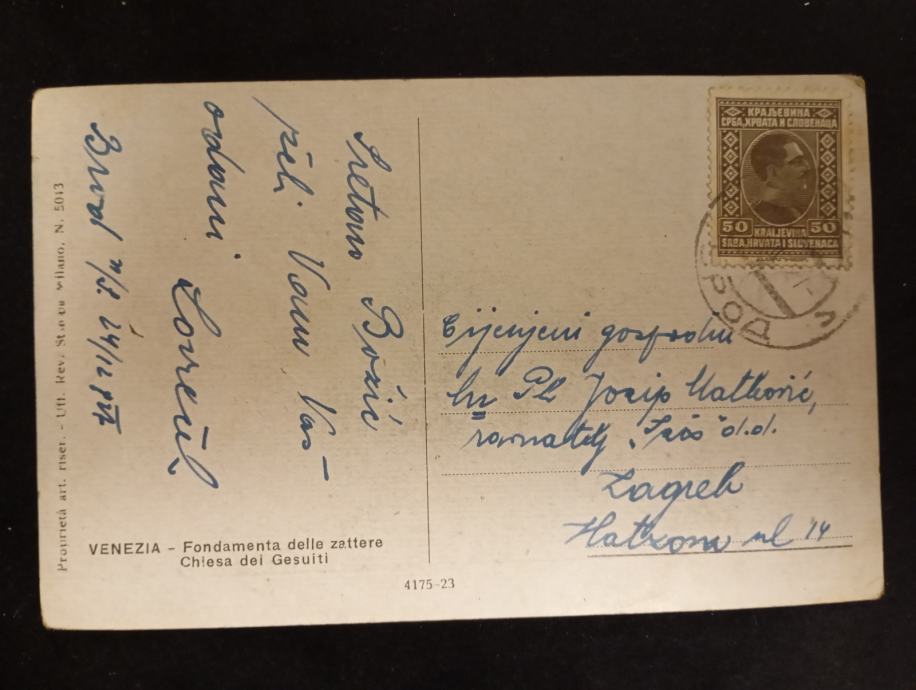 Sretan Božić
želi Vam Vaš
odani
Brod n/S. 24/12
Cijenjeni gospodin
Josip Matković,
ravnatelj d.d.
Zagreb
Hatzova ul 14
VENEZIA - Fondamenta delle zattere
Chiesa dei Gesuiti
4175-23
Proprietà art. riser. - Uff. Rev. Milano, N. 5043
КРАЉЕВИНА
СРБА, ХРВАТА И СЛОВЕНАЦА
50 50
KRALJEVINA
SRBA, HRVATA I SLOVENACA
РОД